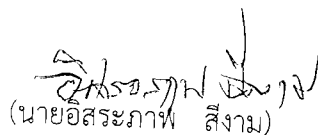 อิสระภาพ สีงาม
(นายอิสระภาพ สีงาม)